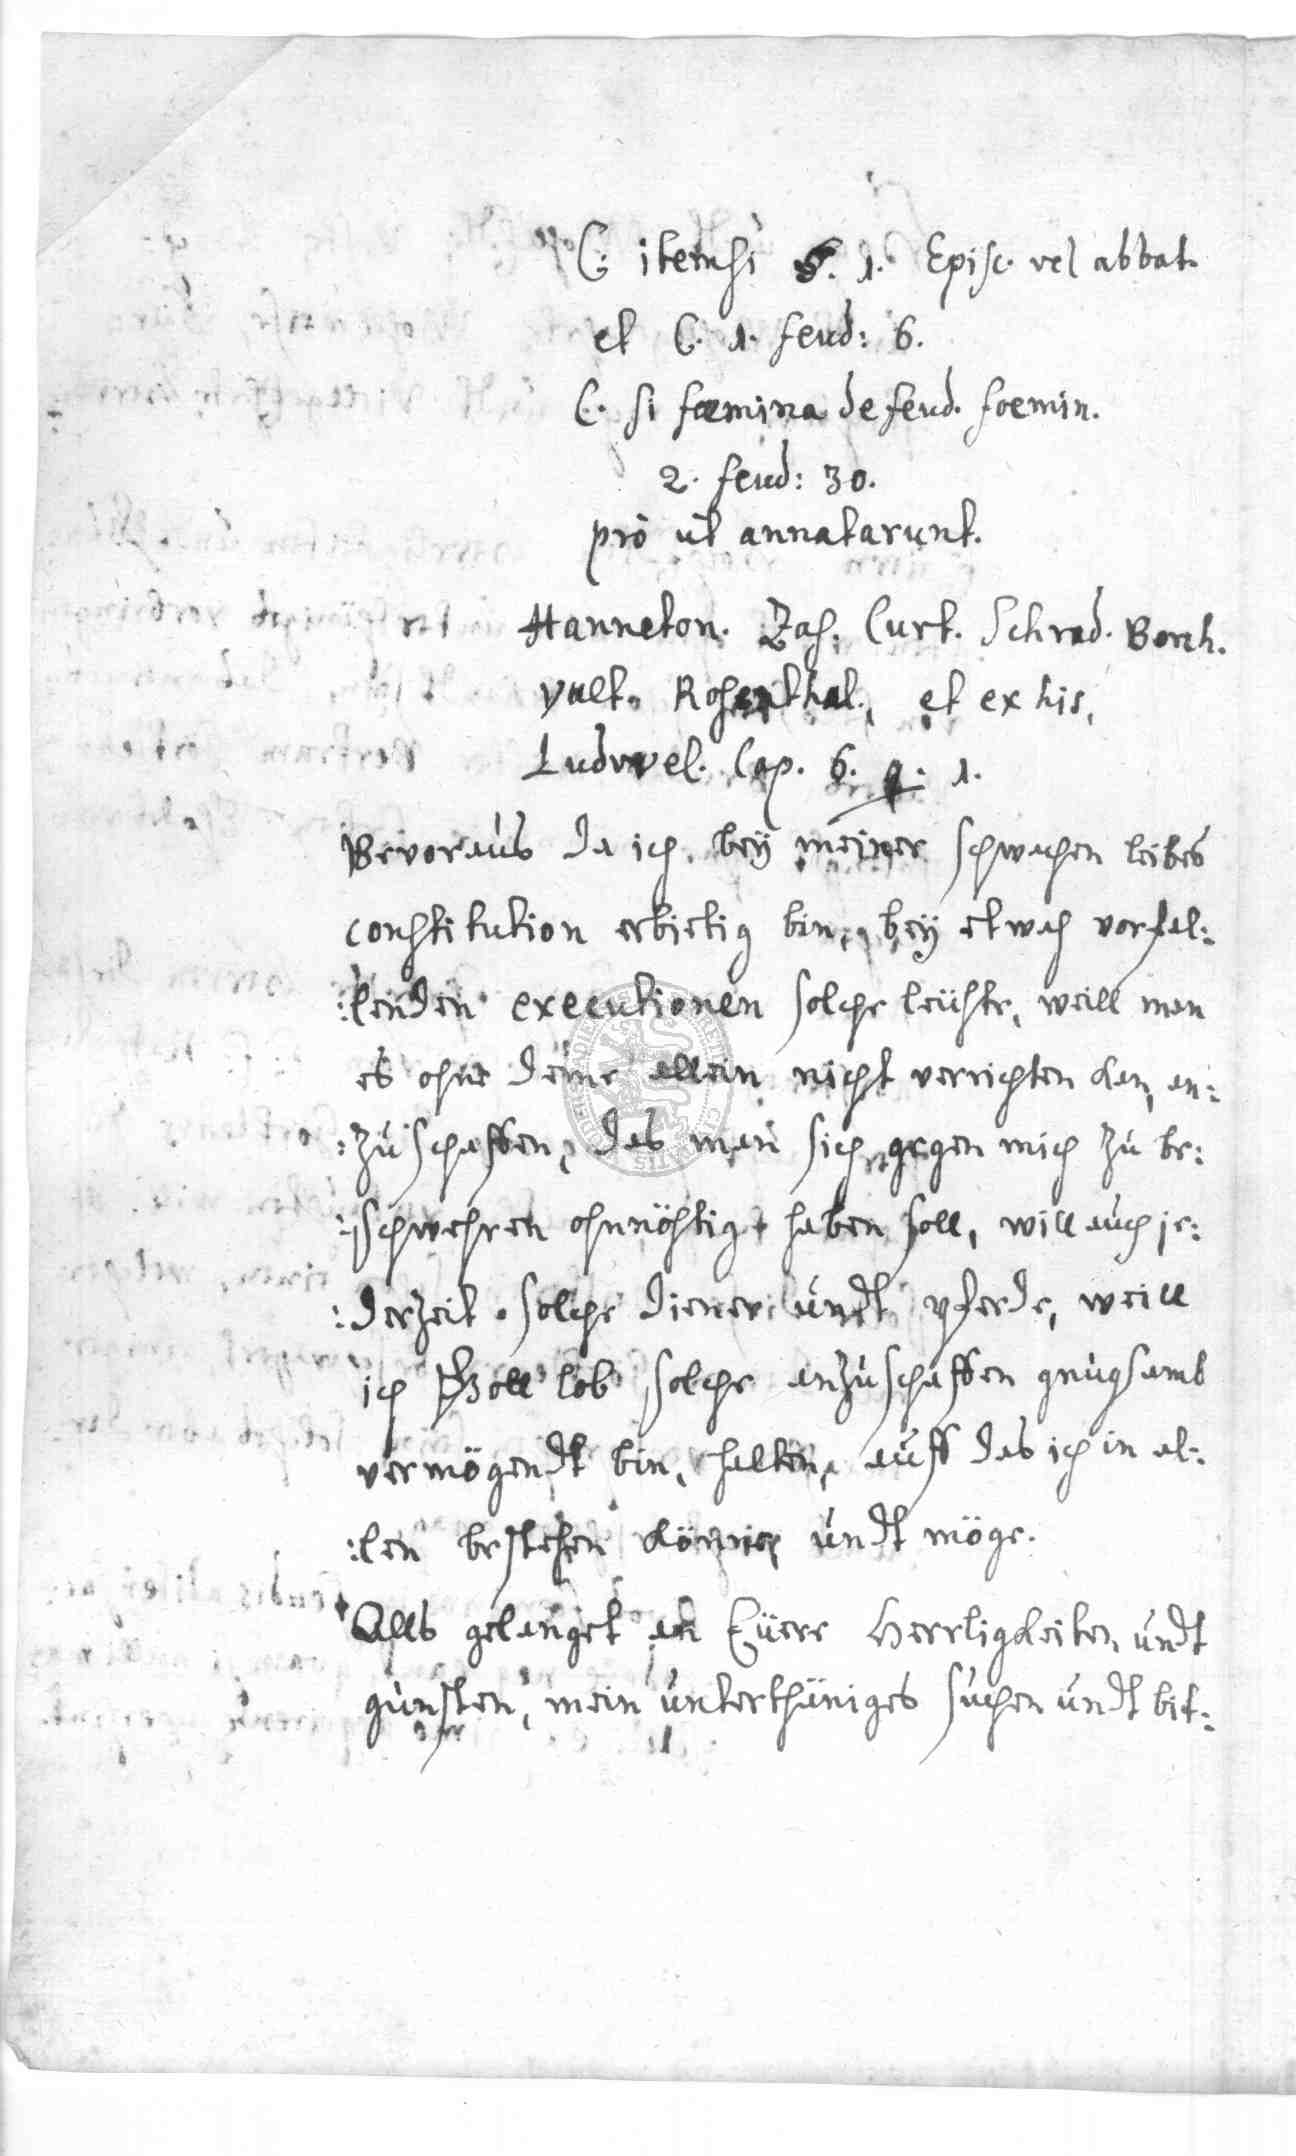 C. item si §. 1. Episc. vel abbat.
et C. 1. feud: 6.
C. si fœmina de feud. foemin.
2. feud: 30.
pro ut annatarunt.
Hanneton. Zas. Curt. Schrad. Borch.
Vult. Rosenthal., et ex his,
Ludvvel. Cap. 6. q. 1.
Bevoraus da ich bey meiner schwachen leibes
constitution erbietig bin, bey etwah vorfal:
:lenden executionen solche leühte, weill man
es ohne deme allein nicht verrichten kan, an:
:zuschaffen, das man sich gegen mich zu be:
:schwehren ohnnöhtig haben soll, will auch je:
:derzeit solche diener undt pferde, weill
ich Gott lob solche anzuschaffen gnugsamb
vermögendt bin, halten, auff das ich in al:
:len bestehen könne, undt möge.
Alls gelanget an Eüere Herrligkeiten, undt
gunsten, mein unterthäniges suchen undt bit: